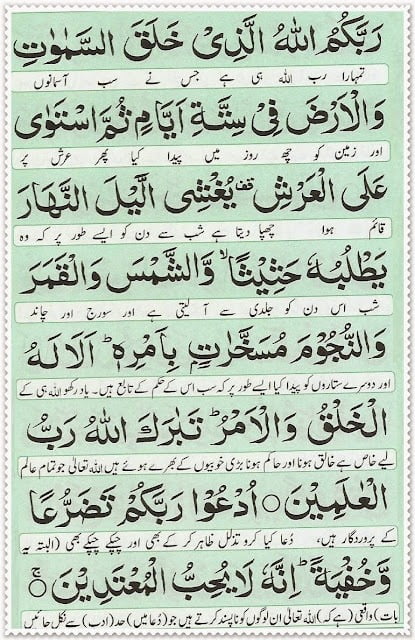 رَبَّكُمُ اللّٰهُ الَّذِیْ خَلَقَ السَّمٰوٰتِ
تمہارا رب اللہ ہی ہے جس نے سب آسمانوں
وَالْاَرْضَ فِیْ سِتَّةِ اَیَّامٍ ثُمَّ اسْتَوٰی
اور زمین کو چھ روز میں پیدا کیا پھر عرش پر
عَلَی الْعَرْشِ ۫ یُغْشِی الَّیْلَ النَّهَارَ
قائم ہوا چھپا دیتا ہے شب سے دن کو ایسے طور پر کہ وہ
یَطْلُبُهٗ حَثِیْثًا ۙ وَّالشَّمْسَ وَالْقَمَرَ
شب اس دن کو جلدی سے آ لیتی ہے اور سورج اور چاند
وَالنُّجُوْمَ مُسَخَّرٰتٍۭ بِاَمْرِهٖ ؕ اَلَا لَهُ
اور دوسرے ستاروں کو پیدا کیا ایسے طور پر کہ سب اس کے حکم کے تابع ہیں۔ یاد رکھو اللہ ہی کے
الْخَلْقُ وَالْاَمْرُ ؕ تَبٰرَكَ اللّٰهُ رَبُّ
لیے خاص ہے خالق ہونا اور حاکم ہونا بڑی خوبیوں کے بھرے ہوئے ہیں اللہ تعالیٰ جو تمام عالم
الْعٰلَمِیْنَ ○ اُدْعُوْا رَبَّكُمْ تَضَرُّعًا
کے پروردگار ہیں، دُعا کیا کرو تذلل ظاہر کر کے بھی اور چپکے چپکے بھی (البتہ یہ
وَّخُفْیَةً ؕ اِنَّهٗ لَا یُحِبُّ الْمُعْتَدِیْنَ ○ ۚ
بات) واقعی (ہے کہ) اللہ تعالیٰ ان لوگوں کو نا پسند کرتے ہیں جو (دُعا میں) حد (ادب) سے نکل جائیں